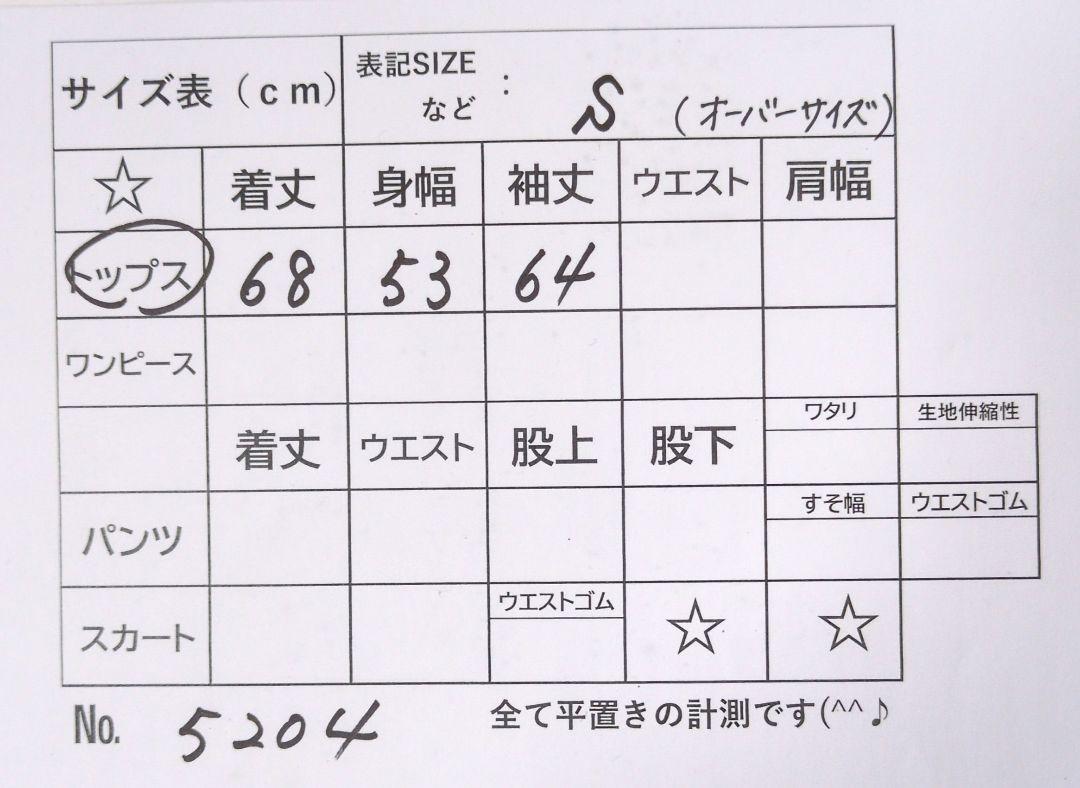 サイズ表（cm） 表記SIZE
など : S (オーバーサイズ)
☆ 着丈 身幅 袖丈 ウエスト 肩幅
トップス 68 53 64
ワンピース
着丈 ウエスト 股上 股下 ワタリ 生地伸縮性
パンツ すそ幅 ウエストゴム
スカート ウエストゴム ☆ ☆
No. 5204 全て平置きの計測です(^^♪